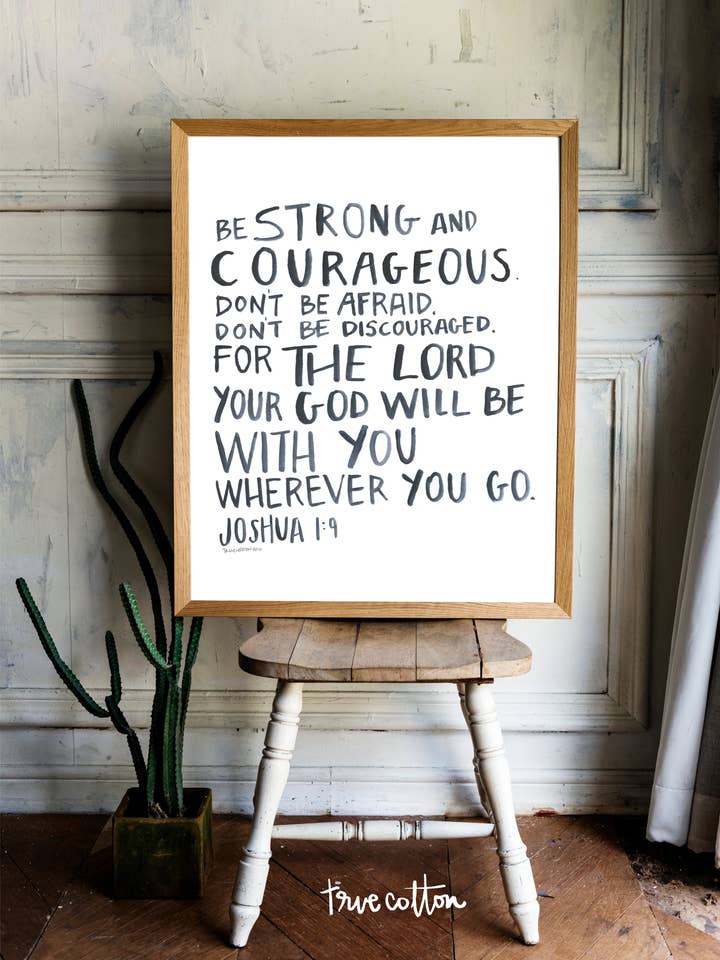 BE STRONG AND
COURAGEOUS.
DON'T BE AFRAID.
DON'T BE DISCOURAGED.
FOR THE LORD
YOUR GOD WILL BE
WITH YOU
WHEREVER YOU GO.
JOSHUA 1:9
true cotton